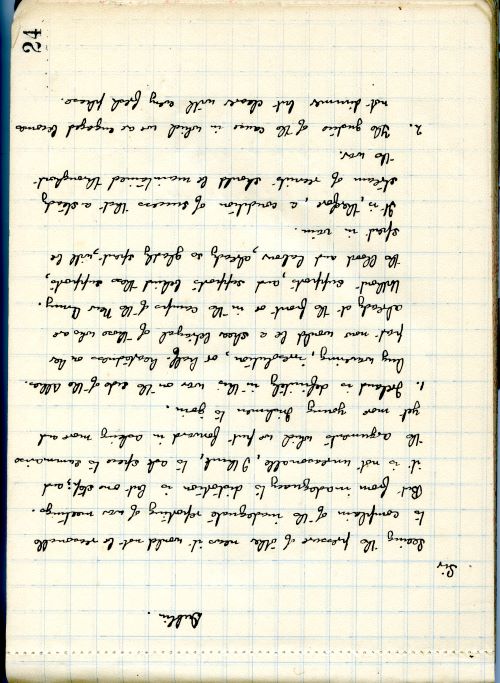 Dublin.
Sir
Seeing the pressure of other news it would not be reasonable
to complain of the inadequate reporting of war meetings.
But from inadequacy to distortion is but one step, and
it is not unreasonable, I think, to ask space to summarise
the arguments which we put forward in asking more and
yet more young Irishmen to join.
1. Ireland is definitely in this war on the side of the Allies.
Any wavering, irresolution, or half-heartedness on her
part now would be a sheer betrayal of those who are
already at the front or in the camps of the New Army.
Without supports, and supports behind these supports,
the blood and labour, already so gladly spent, will be
spent in vain.
It is, therefore, a condition of success that a steady
stream of recruits should be maintained throughout
the war.
2. The justice of the cause in which we are engaged becomes
not dimmer but clearer with every fresh phase.
24